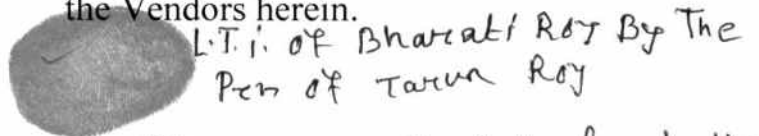 the Vendors herein.
L.T.i. of Bharati Roy By The
Pen of Tarun Roy